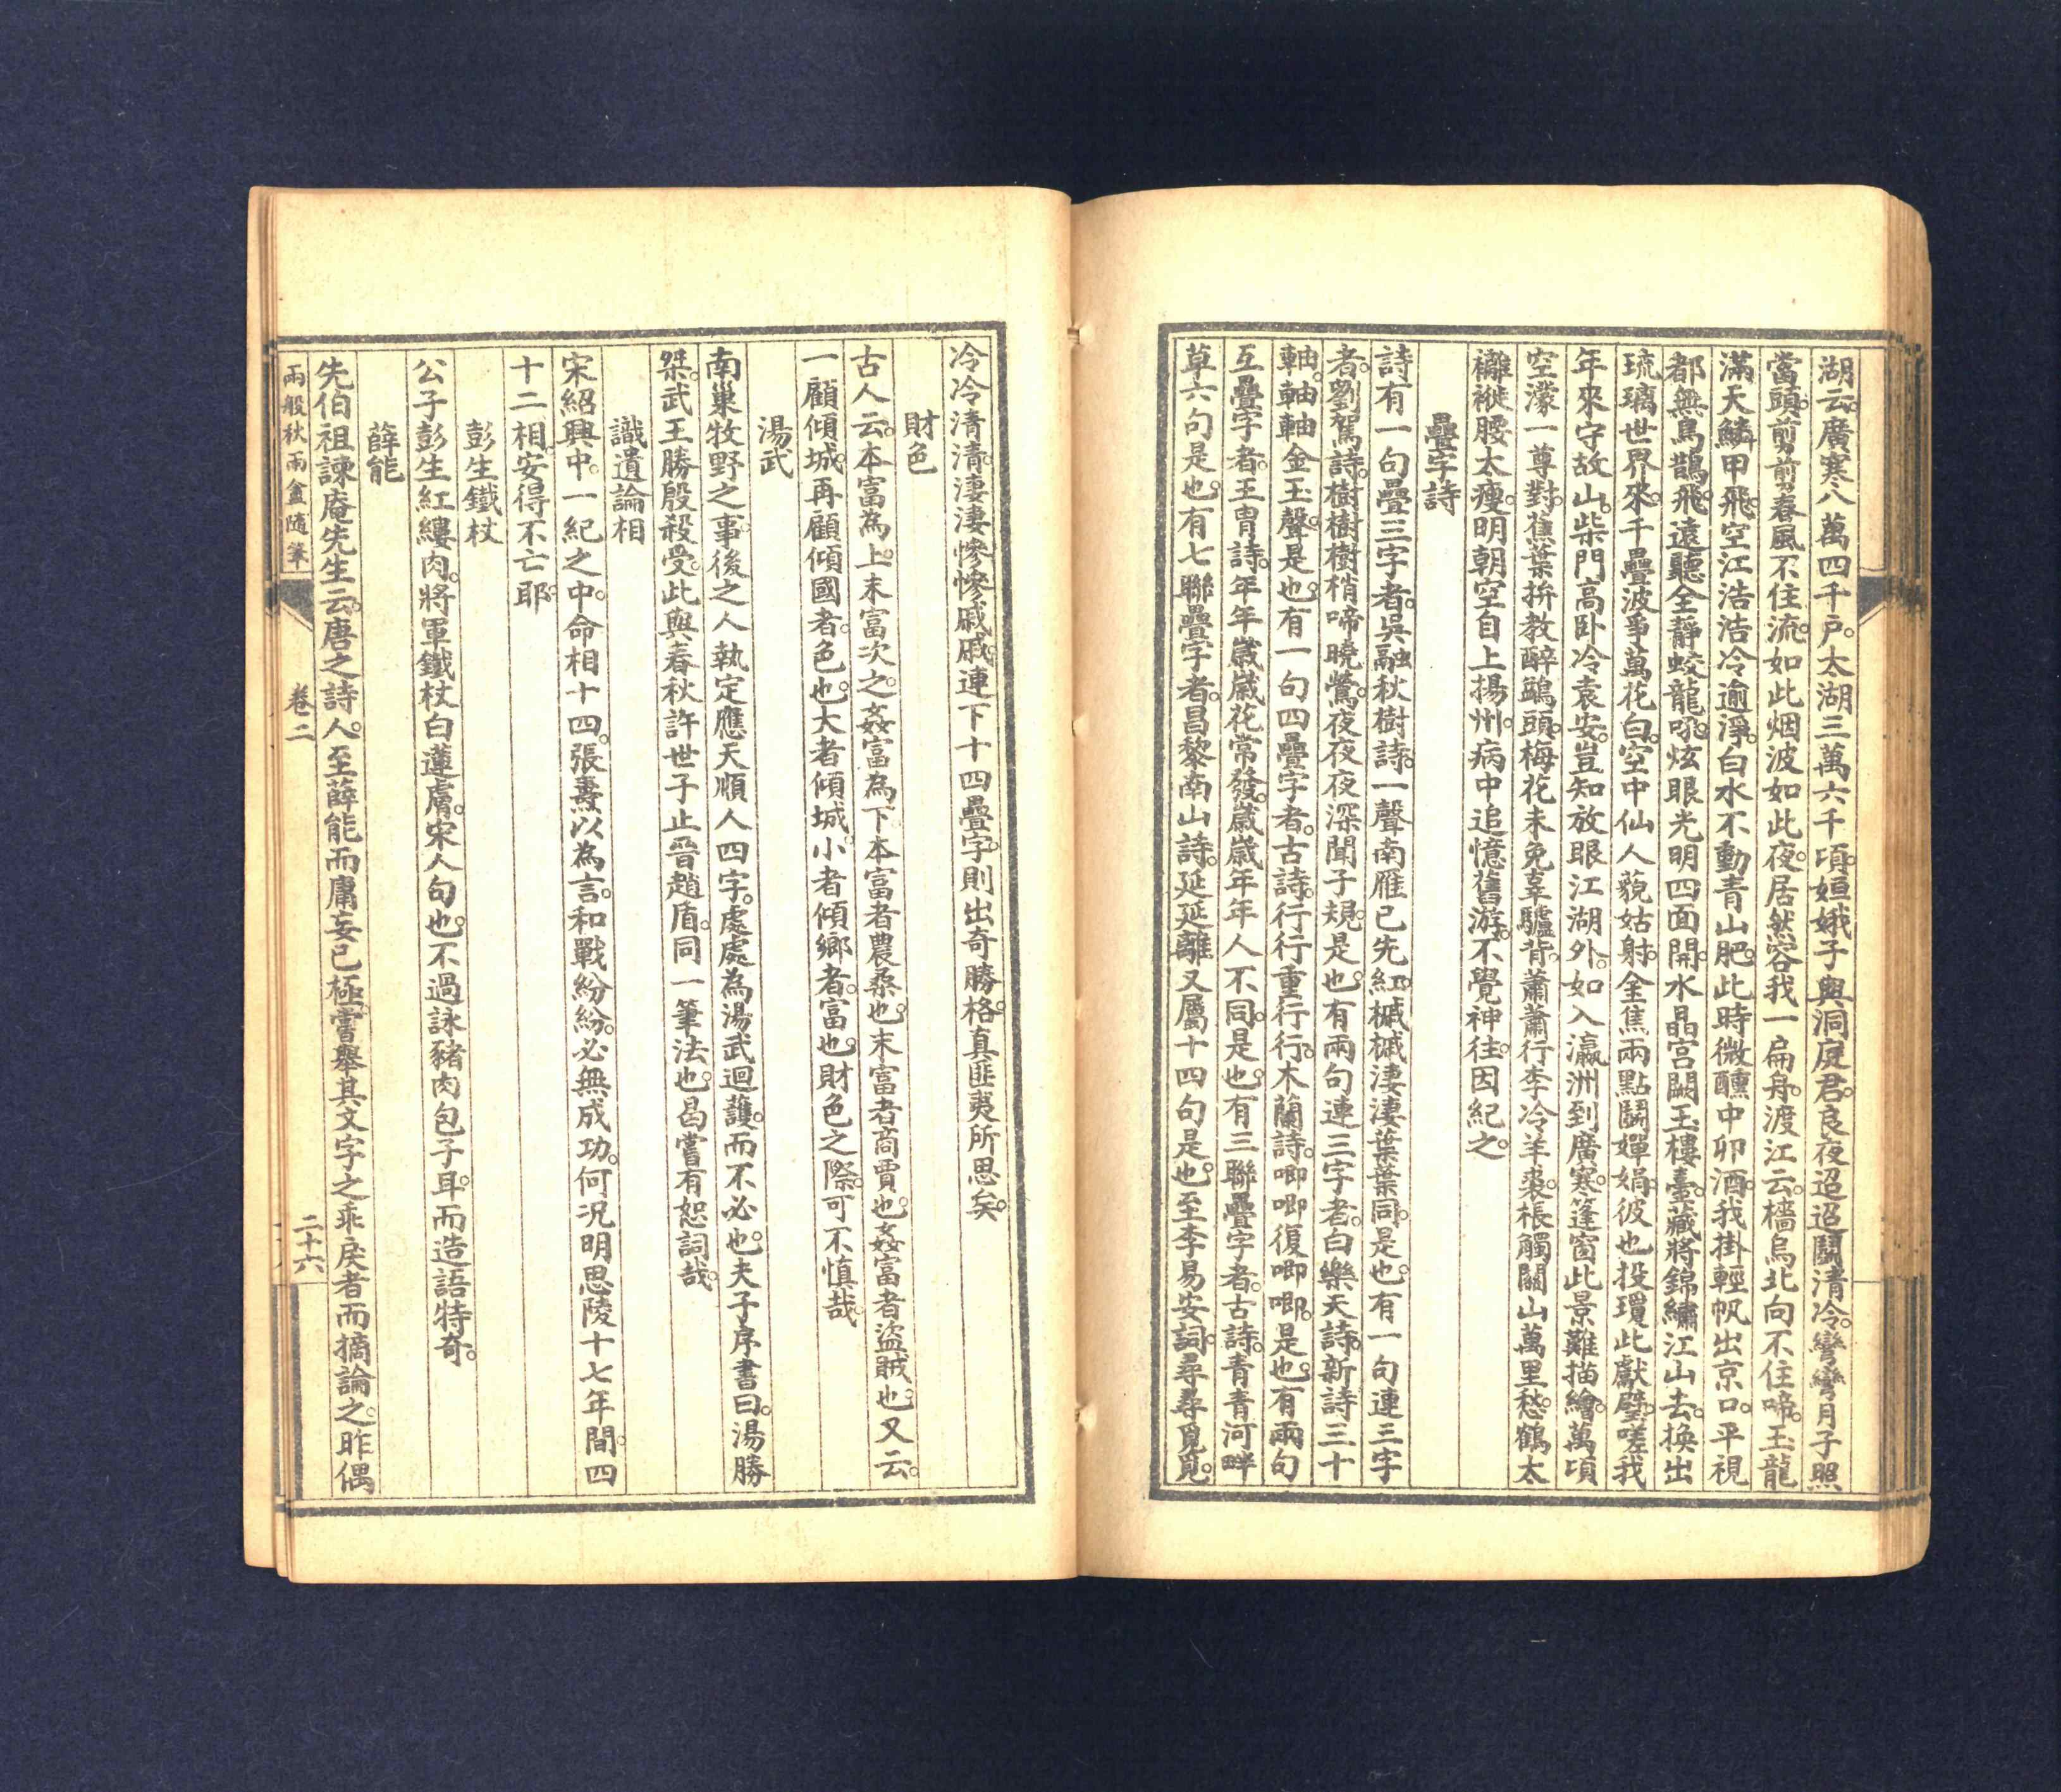 湖云。廣寒八萬四千戶。太湖三萬六千頃。姮娥子與洞庭君。良夜迢迢鬭清冷。彎彎月子照
當頭。剪剪春風不住流。如此烟波如此夜。居然容我一扁舟。渡江云。檣烏北向不住啼。玉龍
滿天鱗甲飛。空江浩浩冷逾淨。白水不動青山肥。此時微醺中卯酒。我掛輕帆出京口。平視
都無鳥鵲飛。遠聽全靜蛟龍吼。炫眼光明四面開。水晶宮闕玉樓臺。藏將錦繡江山去。換出
琉璃世界來。千疊波爭萬花白。空中仙人藐姑射。金焦兩點鬭嬋娟。彼也投瓊此獻璧。嗟我
年來守故山。柴門高卧冷袁安。豈知放眼江湖外。如入瀛洲到廣寒。篷窗此景難描繪。萬頃
空濛一尊對。蕉葉拚教醉鷁頭。梅花未免辜驢背。蕭蕭行李冷羊裘。棖觸關山萬里愁。鶴太
襹褷腰太瘦。明朝空自上揚州。病中追憶舊游。不覺神往。因紀之。
疊字詩
詩有一句疊三字者。吳融秋樹詩。一聲南雁已先紅。槭槭淒淒葉葉同。是也。有一句連三字
者。劉駕詩。樹樹樹梢啼曉鶯。夜夜夜深聞子規。是也。有兩句連三字者。白樂天詩。新詩三十
軸。軸軸金玉聲。是也。有一句四疊字者。古詩。行行重行行。木蘭詩。唧唧復唧唧。是也。有兩句
互疊字者。王胄詩。年年歲歲花常發。歲歲年年人不同。是也。有三聯疊字者。古詩。青青河畔
草六句是也。有七聯疊字者。昌黎南山詩。延延離又屬十四句是也。至李易安詞。尋尋覓覓。
冷冷清清。淒淒慘慘戚戚。連下十四疊字。則出奇勝格。真匪夷所思矣。
財色
古人云。本富為上。末富次之。姦富為下。本富者農桑也。末富者商賈也。姦富者盜賊也。又云。
一顧傾城。再顧傾國者。色也。大者傾城。小者傾鄉者。富也。財色之際。可不慎哉。
湯武
南巢牧野之事。後之人執定應天順人四字。處處為湯武迴護。而不必也。夫子序書曰。湯勝
桀。武王勝殷殺受。此與春秋許世子止晉趙盾。同一筆法也。曷嘗有恕詞哉。
識遺論相
宋紹興中。一紀之中。命相十四。張燾以為言。和戰紛紛。必無成功。何況明思陵十七年間。四
十二相。安得不亡耶。
彭生鐵杖
公子彭生紅縷肉。將軍鐵杖白蓮膚。宋人句也。不過詠豬肉包子耳。而造語特奇。
薛能
先伯祖諫庵先生云。唐之詩人。至薛能而庸妄已極。嘗舉其文字之乖戾者而摘論之。昨偶
兩般秋雨盦隨筆
卷二
二十六